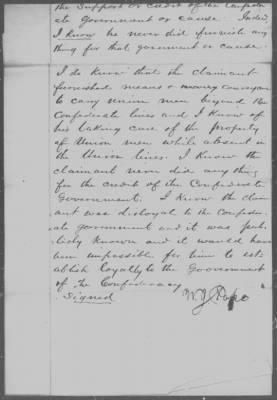 the support or credit of the Confeder
ate Government or cause. Indeed
I know he never did furnish any
thing for that goverment or cause
I do know that the claimant
furnished means & money conveyan
to carry Union men beyond the
Confederate lines and I know of
his taking care of the property
of Union men while absent in
the Union lines. I Know the
claimant never did any thing
for the credit of the Confederate
Government. I Know the claim
ant was disloyal to the Confeder
ate government and it was pub
licly known and it would have
been impossible for him to est
ablish loyalty to the Government
of The Confederacy
Signed
Pope